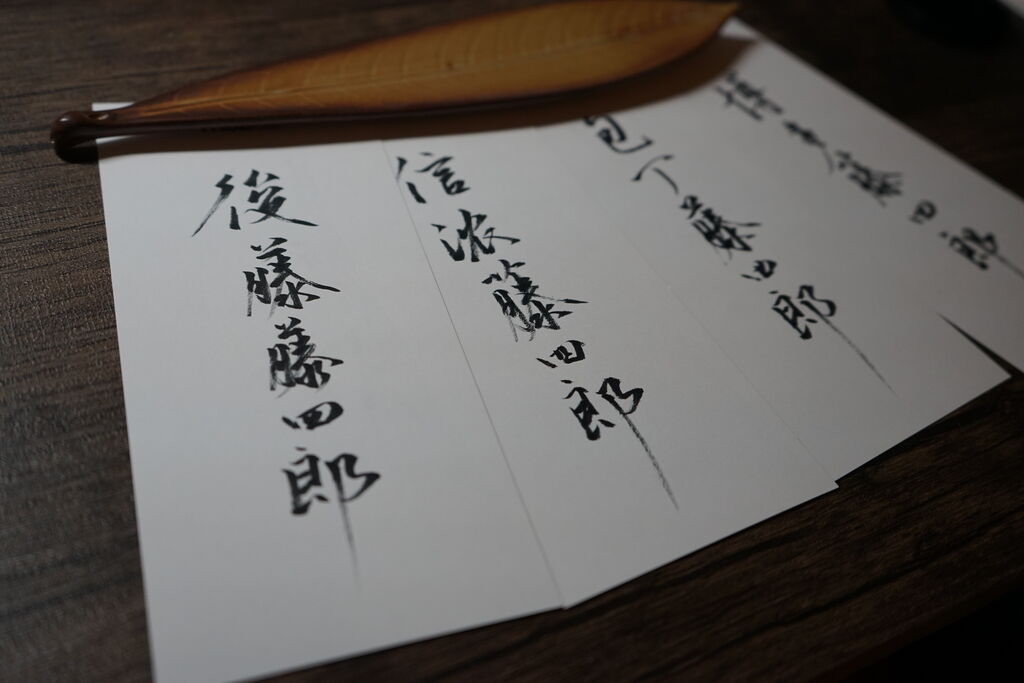 後藤藤四郎
信濃藤四郎
包丁藤四郎
博多藤四郎